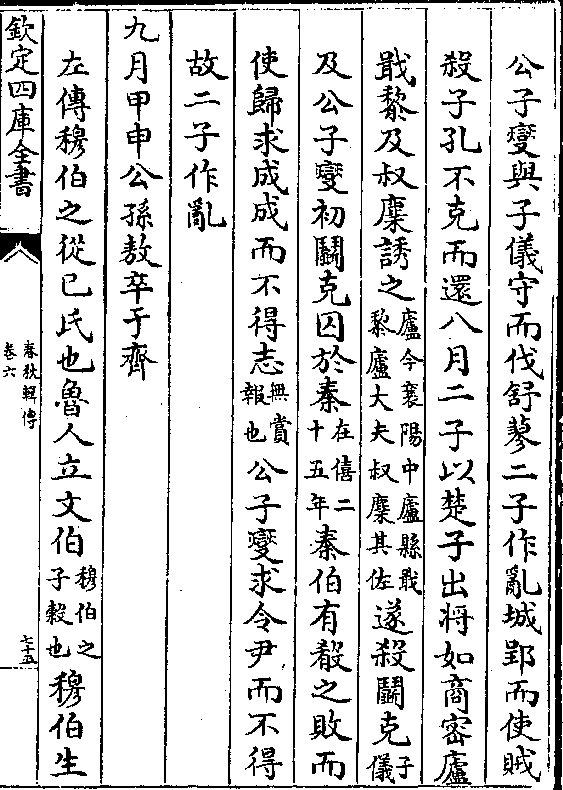 公子燮與子儀守而伐舒蓼二子作亂城郢而使賊
殺子孔不克而還八月二子以楚子出將如商密廬
戢黎及叔麇誘之廬今襄陽中廬縣戢黎廬大夫叔麇其佐遂殺鬬克子儀
及公子燮初鬬克囚於秦在僖二十五年秦伯有殽之敗而
使歸求成成而不得志無賞報也公子燮求令尹而不得
故二子作亂
九月甲申公孫敖卒于齊
左傳穆伯之從已氏也魯人立文伯穆伯之子榖也穆伯生
欽定四庫全書
春秋輯傳
卷六
七十五